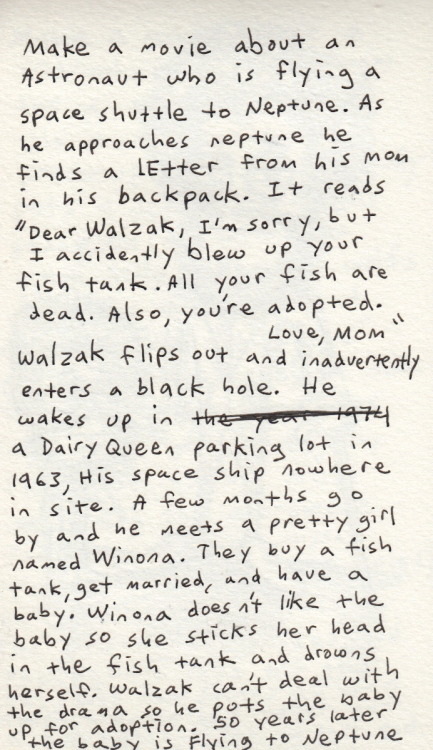 Make a movie about an
Astronaut who is flying a
space shuttle to Neptune. As
he approaches neptune he
finds a lEtter from his mom
in his backpack. It reads
"Dear Walzak, I'm sorry, but
I accidently blew up your
fish tank. All your fish are
dead. Also, you're adopted.
Love, Mom"
Walzak flips out and inadvertently
enters a black hole. He
wakes up in the year 1974
a Dairy Queen parking lot in
1963, His space ship nowhere
in site. A few months go
by and he meets a pretty girl
named Winona. They buy a fish
tank, get married, and have a
baby. Winona doesn't like the
baby so she sticks her head
in the fish tank and drowns
herself. Walzak can't deal with
the drama so he puts the baby
up for adoption. 50 years later
the baby is Flying to Neptune